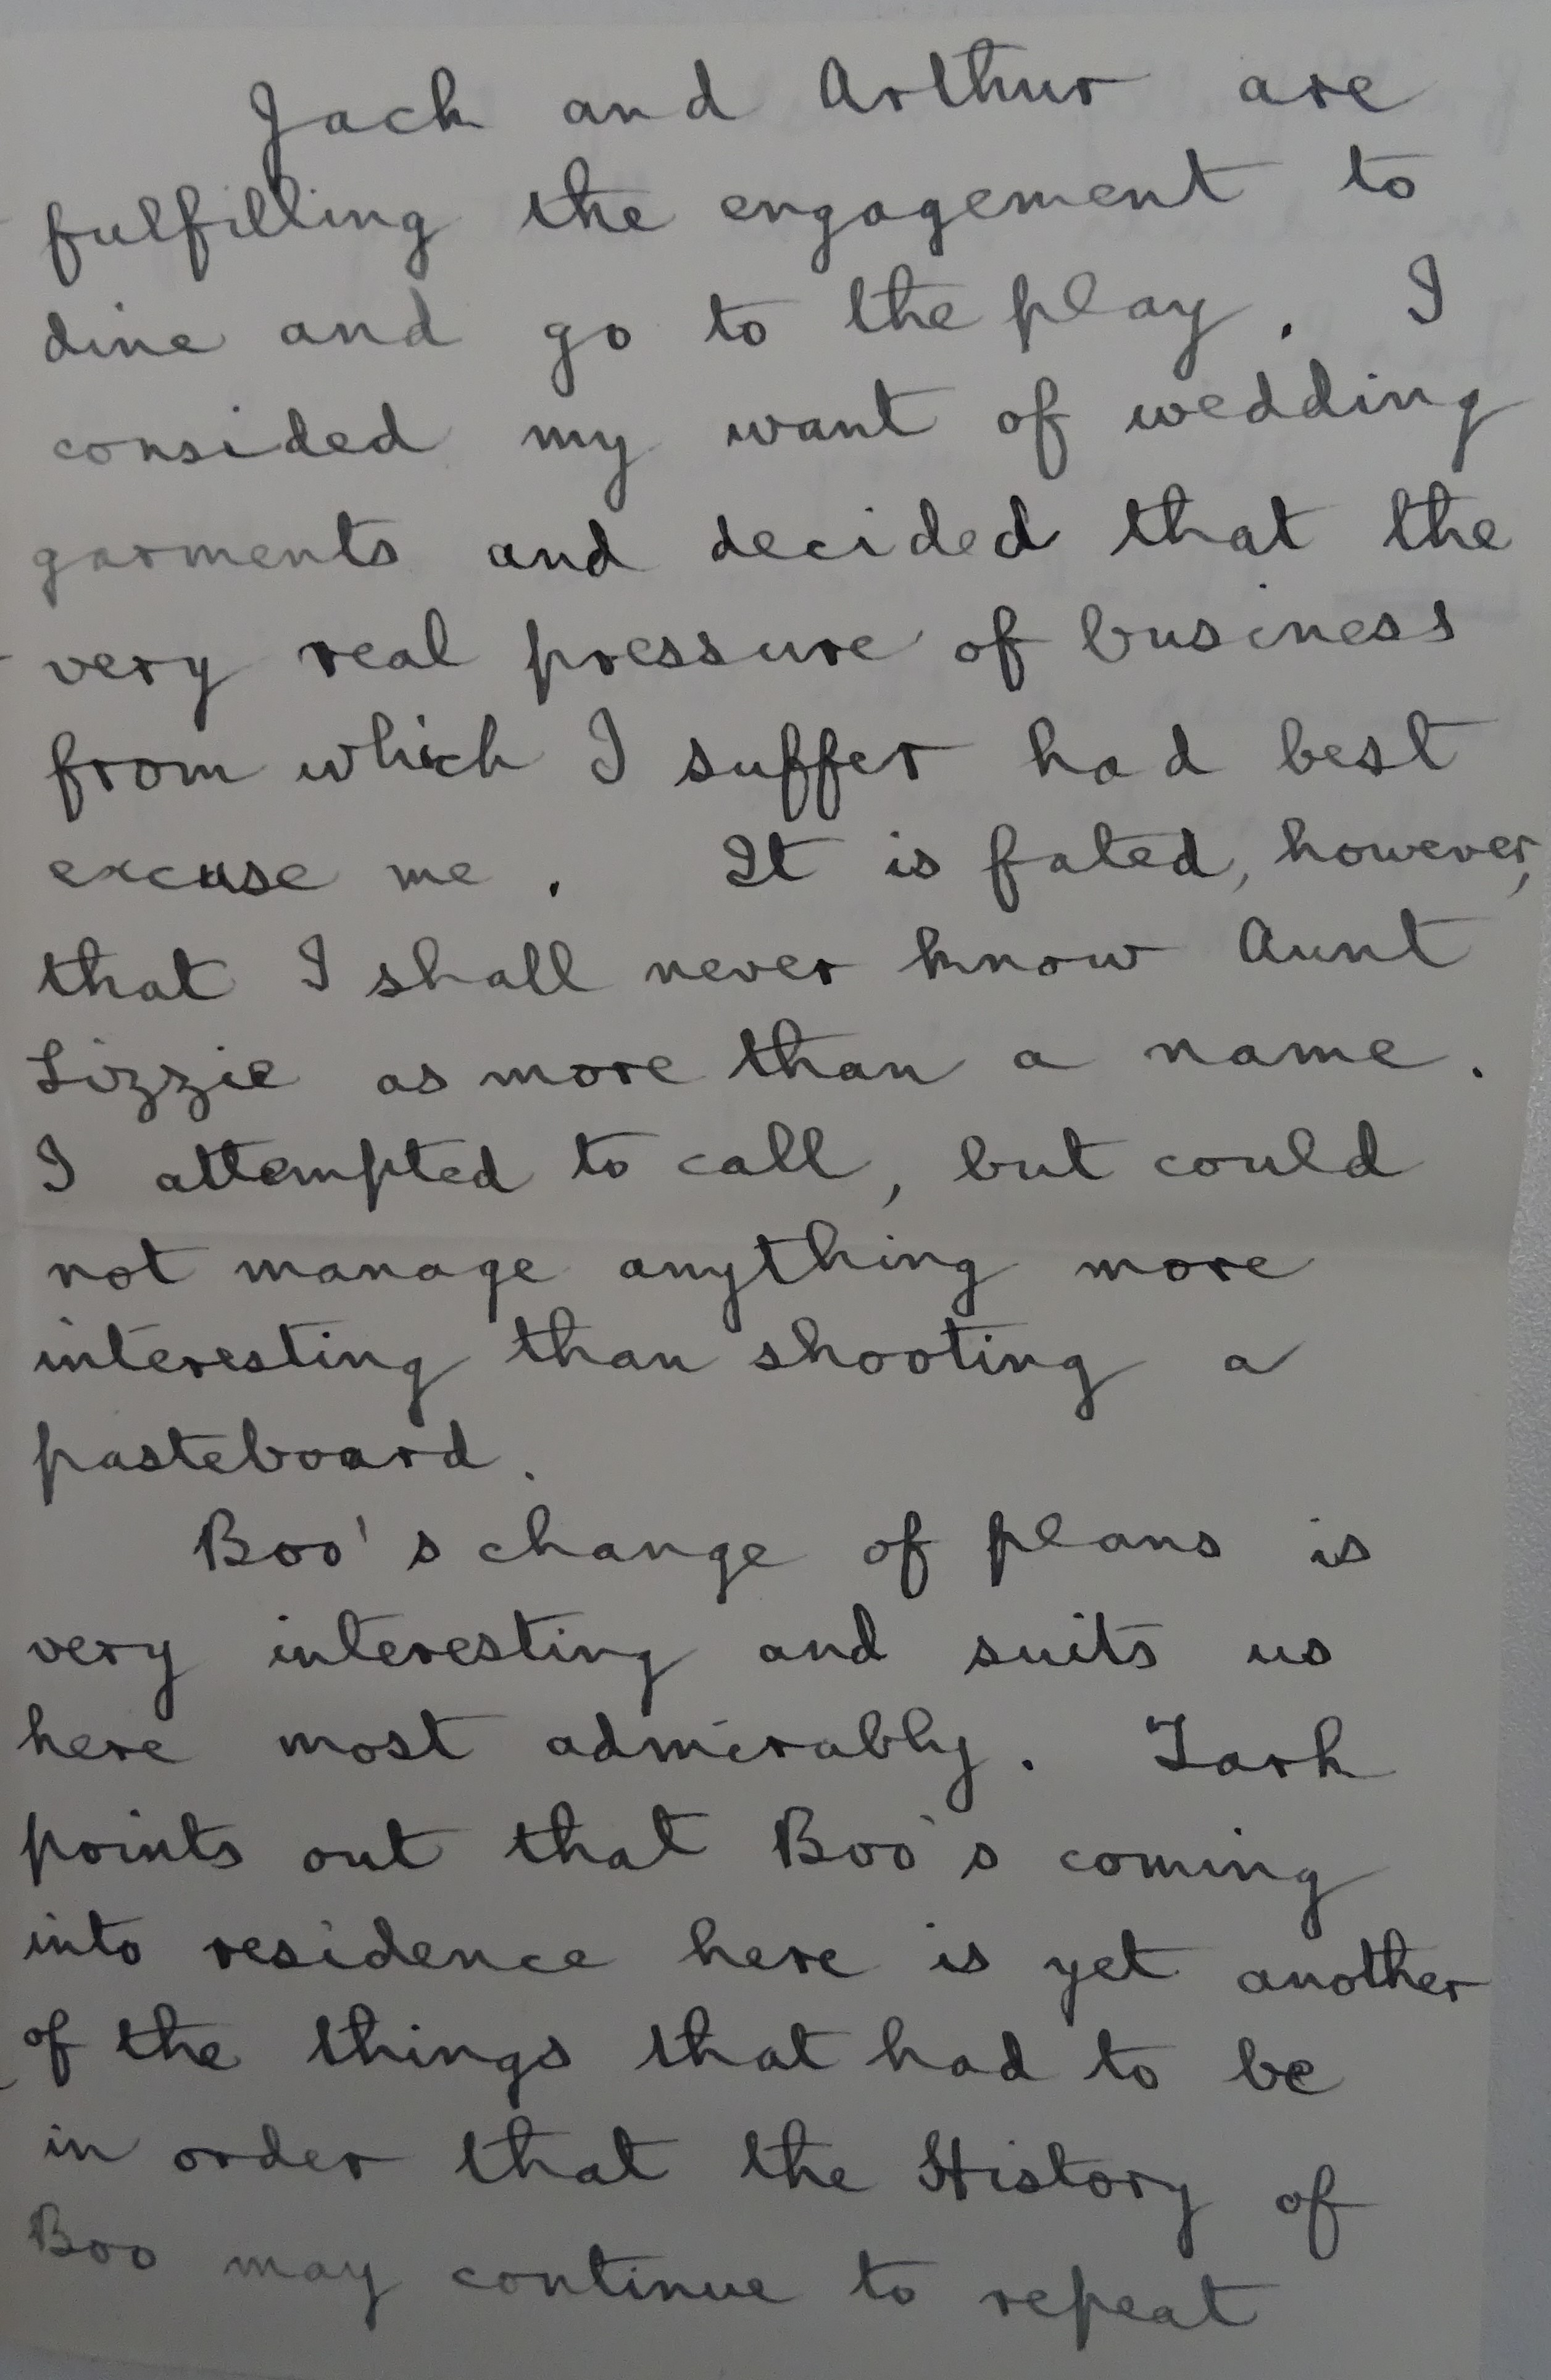 Jack and Arthur are
fulfilling the engagement to
dine and go to the play. I
consided my want of wedding
garments and decided that the
very real pressure of business
from which I suffer had best
excuse me. It is fated, however,
that I shall never know Aunt
Lizzie as more than a name.
I attempted to call, but could
not manage anything more
interesting than shooting a
pasteboard.
Boo's change of plans is
very interesting and suits us
here most admirably. Tark
points out that Boo's coming
into residence here is yet another
of the things that had to be
in order that the History of
Boo may continue to repeat